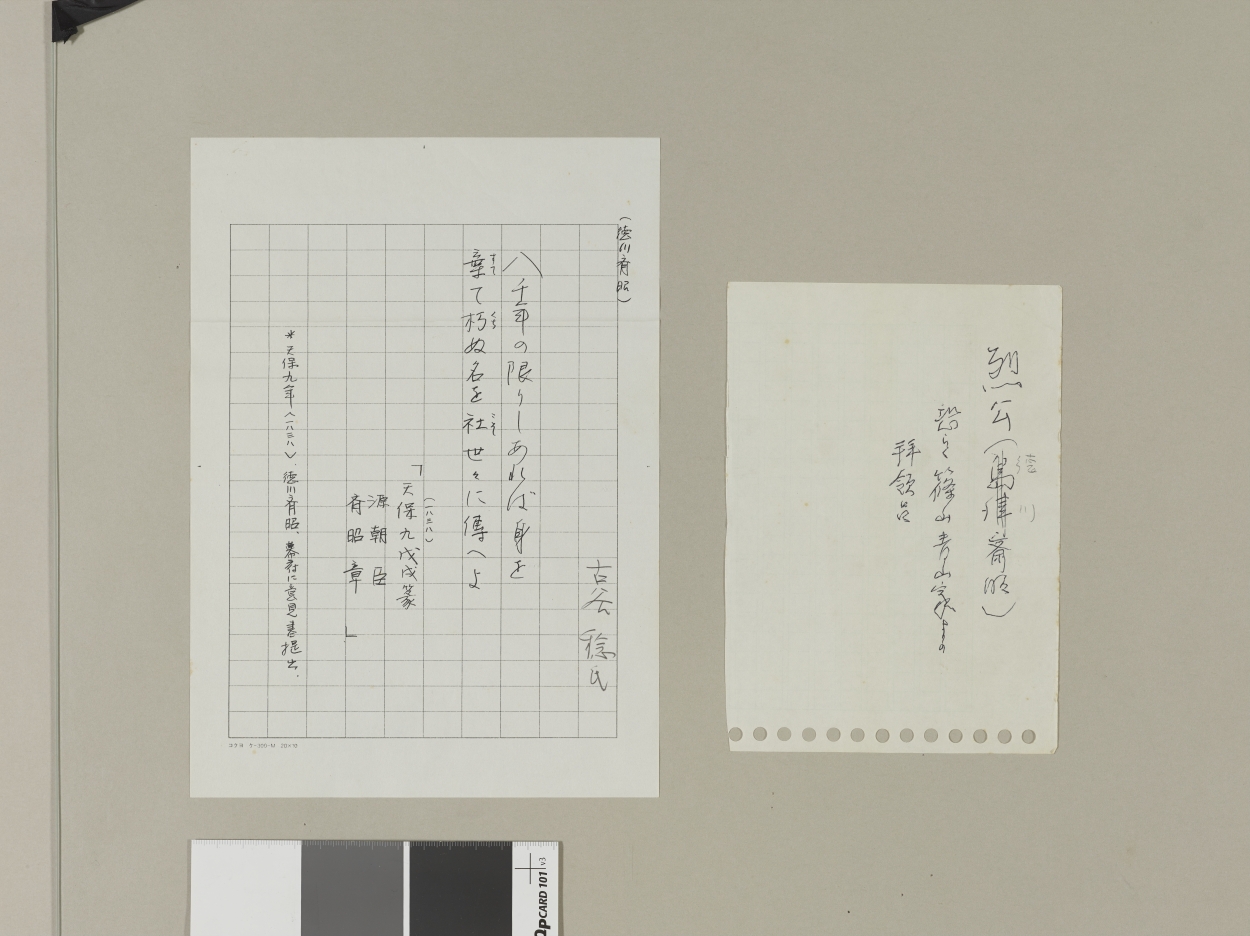 烈公（
徳川
斎昭）
篠山青山家よりの
拝領品
（徳川斉昭）
古谷 稔氏
八千年の限りしあれば身を
棄て朽ぬ名を社世々に傳へよ
すて
くち
こそ
（一八三八）
「天保九戊戌篆
源朝臣
斉昭章」
＊天保九年（一八三八）、徳川斉昭、幕府に意見書提出。
コクヨ ケ-30 20×10
CARD 101 v3